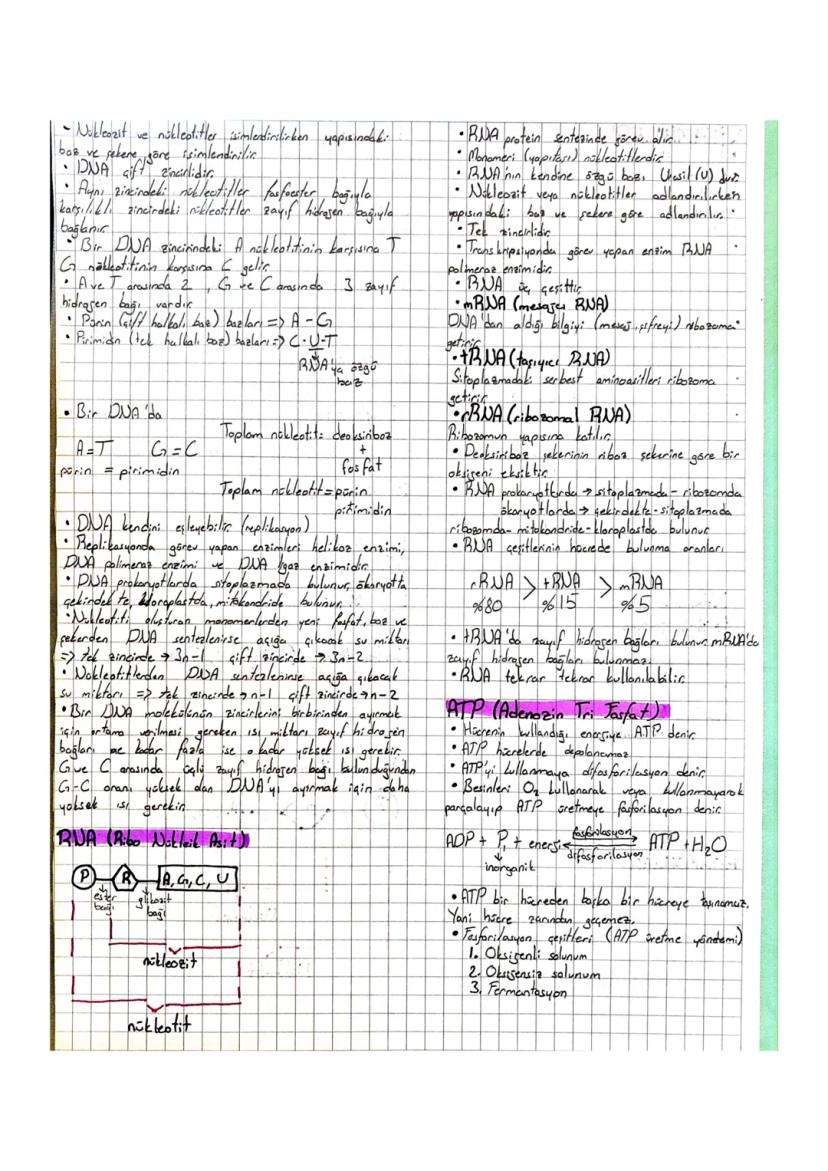 - Nükleozit ve nükleotitler isimlendirilirken yapısındaki
baz ve şekere göre isimlendirilir.
• DNA çift zincirlidir.
• Aynı zincirdeki nükleotitler fosfoester bağıyla
karşılıklı zincirdeki nükleotitler zayıf hidrojen bağıyla
bağlanır.
• Bir DNA zincirindeki A nükleotitinin karşısına T
G nükleotitinin karşısına C gelir.
• A ve T arasında 2, G ve C arasında 3 zayıf
hidrojen bağı vardır.
• Pürin (çift halkalı baz) bazları => A-G
• Pirimidin (tek halkalı baz) bazları => C-U-T
RNA'ya özgü
baz
• Bir DNA'da
A=T G=C
pürin = pirimidin
Toplam nükleotit= deoksiriboz
+
fosfat
Toplam nükleotit=pürin
pirimidin
• DNA kendini eşleyebilir (replikasyon)
• Replikasyonda görev yapan enzimleri helikaz enzimi,
DNA polimeraz enzimi ve DNA ligaz enzimidir.
• DNA prokaryotlarda sitoplazmada bulunur, ökaryotta
çekirdekte, kloroplastda, mitokondride bulunur.
• Nükleotiti oluşturan monomerlerden yeni fosfat, baz ve
şekerden DNA sentezlenirse açığa çıkacak su miktarı
=> tek zincirde → 3n-1 çift zincirde → 3n-2
• Nükleotitlerden DNA sentezlenirse açığa çıkacak
su miktarı => tek zincirde → n-1 çift zincirde → n-2
• Bir DNA molekülünün zincirlerini birbirinden ayırmak
için ortama verilmesi gereken ısı miktarı zayıf hidrojen
bağları ne kadar fazla ise o kadar yüksek ısı gerekir.
G ve C arasında üçlü zayıf hidrojen bağı bulunduğundan
G-C oranı yüksek olan DNA'yı ayırmak için daha
yüksek ısı gerekir.
RNA (Ribo Nükleik Asit)
P R A, G, C, U
ester bağı
glikozit bağı
nükleozit
nükleotit
• RNA protein sentezinde görev alır.
• Monomeri (yapıtaşı) nükleotitlerdir.
• RNA'nın kendine özgü bazı Urasil (U) dur.
• Nükleozit veya nükleotitler adlandırılırken
yapısındaki baz ve şekere göre adlandırılır.
• Tek zincirlidir.
• Transkripsiyonda görev yapan enzim RNA
polimeraz enzimidir.
• RNA üç çeşittir.
• mRNA (mesajcı RNA)
DNA'dan aldığı bilgiyi (mesaj, şifreyi) ribozoma
getirir.
• tRNA (taşıyıcı RNA)
Sitoplazmadaki serbest aminoasitleri ribozoma
getirir.
• rRNA (ribozomal RNA)
Ribozomun yapısına katılır.
• Deoksiriboz şekerinin riboz şekerine göre bir
oksijeni eksiktir.
• RNA prokaryotlarda → sitoplazmada - ribozomda
ökaryotlarda → çekirdekte - sitoplazmada
ribozomda - mitokondride - kloroplastda bulunur.
• RNA çeşitlerinin hücrede bulunma oranları
rRNA > tRNA > mRNA
%80 %15 %5
• tRNA'da zayıf hidrojen bağları bulunur, mRNA'da
zayıf hidrojen bağları bulunmaz.
• RNA tekrar tekrar kullanılabilir.
ATP (Adenozin Tri Fosfat)
• Hücrenin kullandığı enerjiye ATP denir.
• ATP hücrelerde depolanamaz.
• ATP'yi kullanmaya difosforilasyon denir.
• Besinleri O₂ kullanarak veya kullanmayarak
parçalayıp ATP üretmeye fosforilasyon denir.
fosforilasyon
ADP + Pi + enerji ⇄ ATP + H₂O
difosforilasyon
inorganik
• ATP bir hücreden başka bir hücreye taşınamaz.
Yani hücre zarından geçemez.
• Fosforilasyon çeşitleri (ATP üretme yöntemi)
1. Oksijenli solunum
2. Oksijensiz solunum
3. Fermantasyon